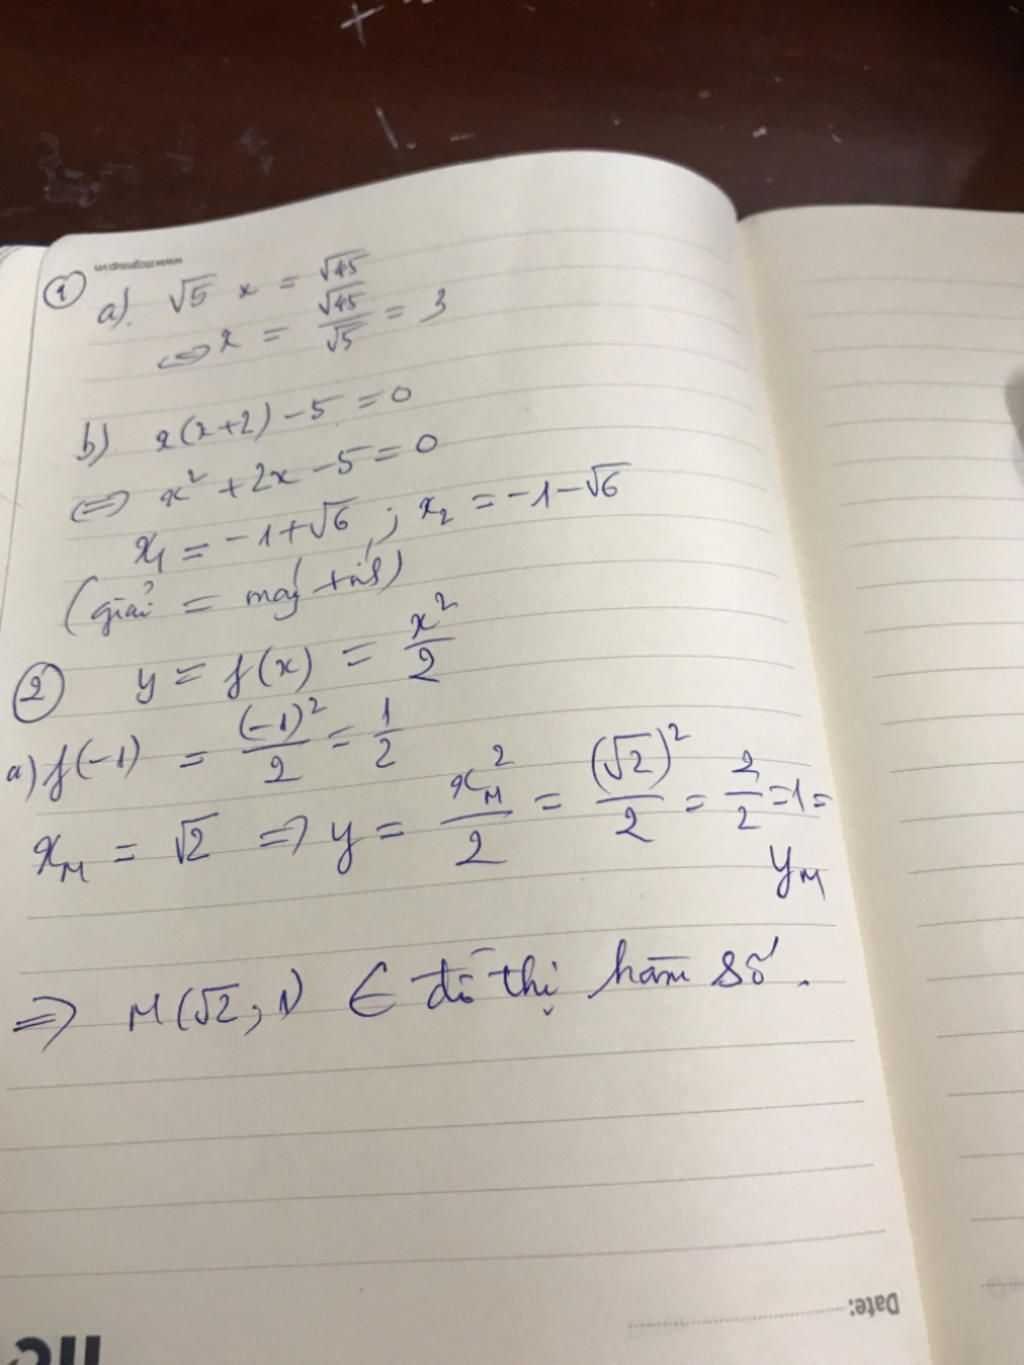 www.ticgroup.vn
① a). √5 x = √45
⇔ x = √45/√5 = 3
b) x(x+2) - 5 = 0
⇔ x² + 2x - 5 = 0
x₁ = -1+√6 ; x₂ = -1-√6
(giải = máy tính)
② y = f(x) = x²/2
a) f(-1) = (-1)²/2 = 1/2
x_M = √2 ⇒ y = x_M²/2 = (√2)²/2 = 2/2 = 1 =
y_M
⇒ M(√2; 1) ∈ đồ thị hàm số.
Date: